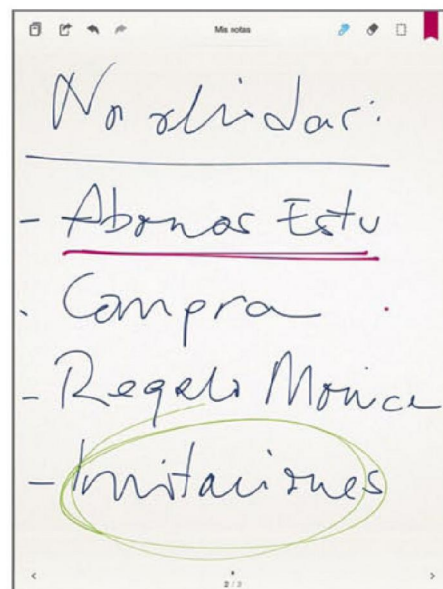 Mis notas
No olvidar:
- Abonos Estu
- Compra
- Regalo Mónica
- Invitaciones
2 / 3